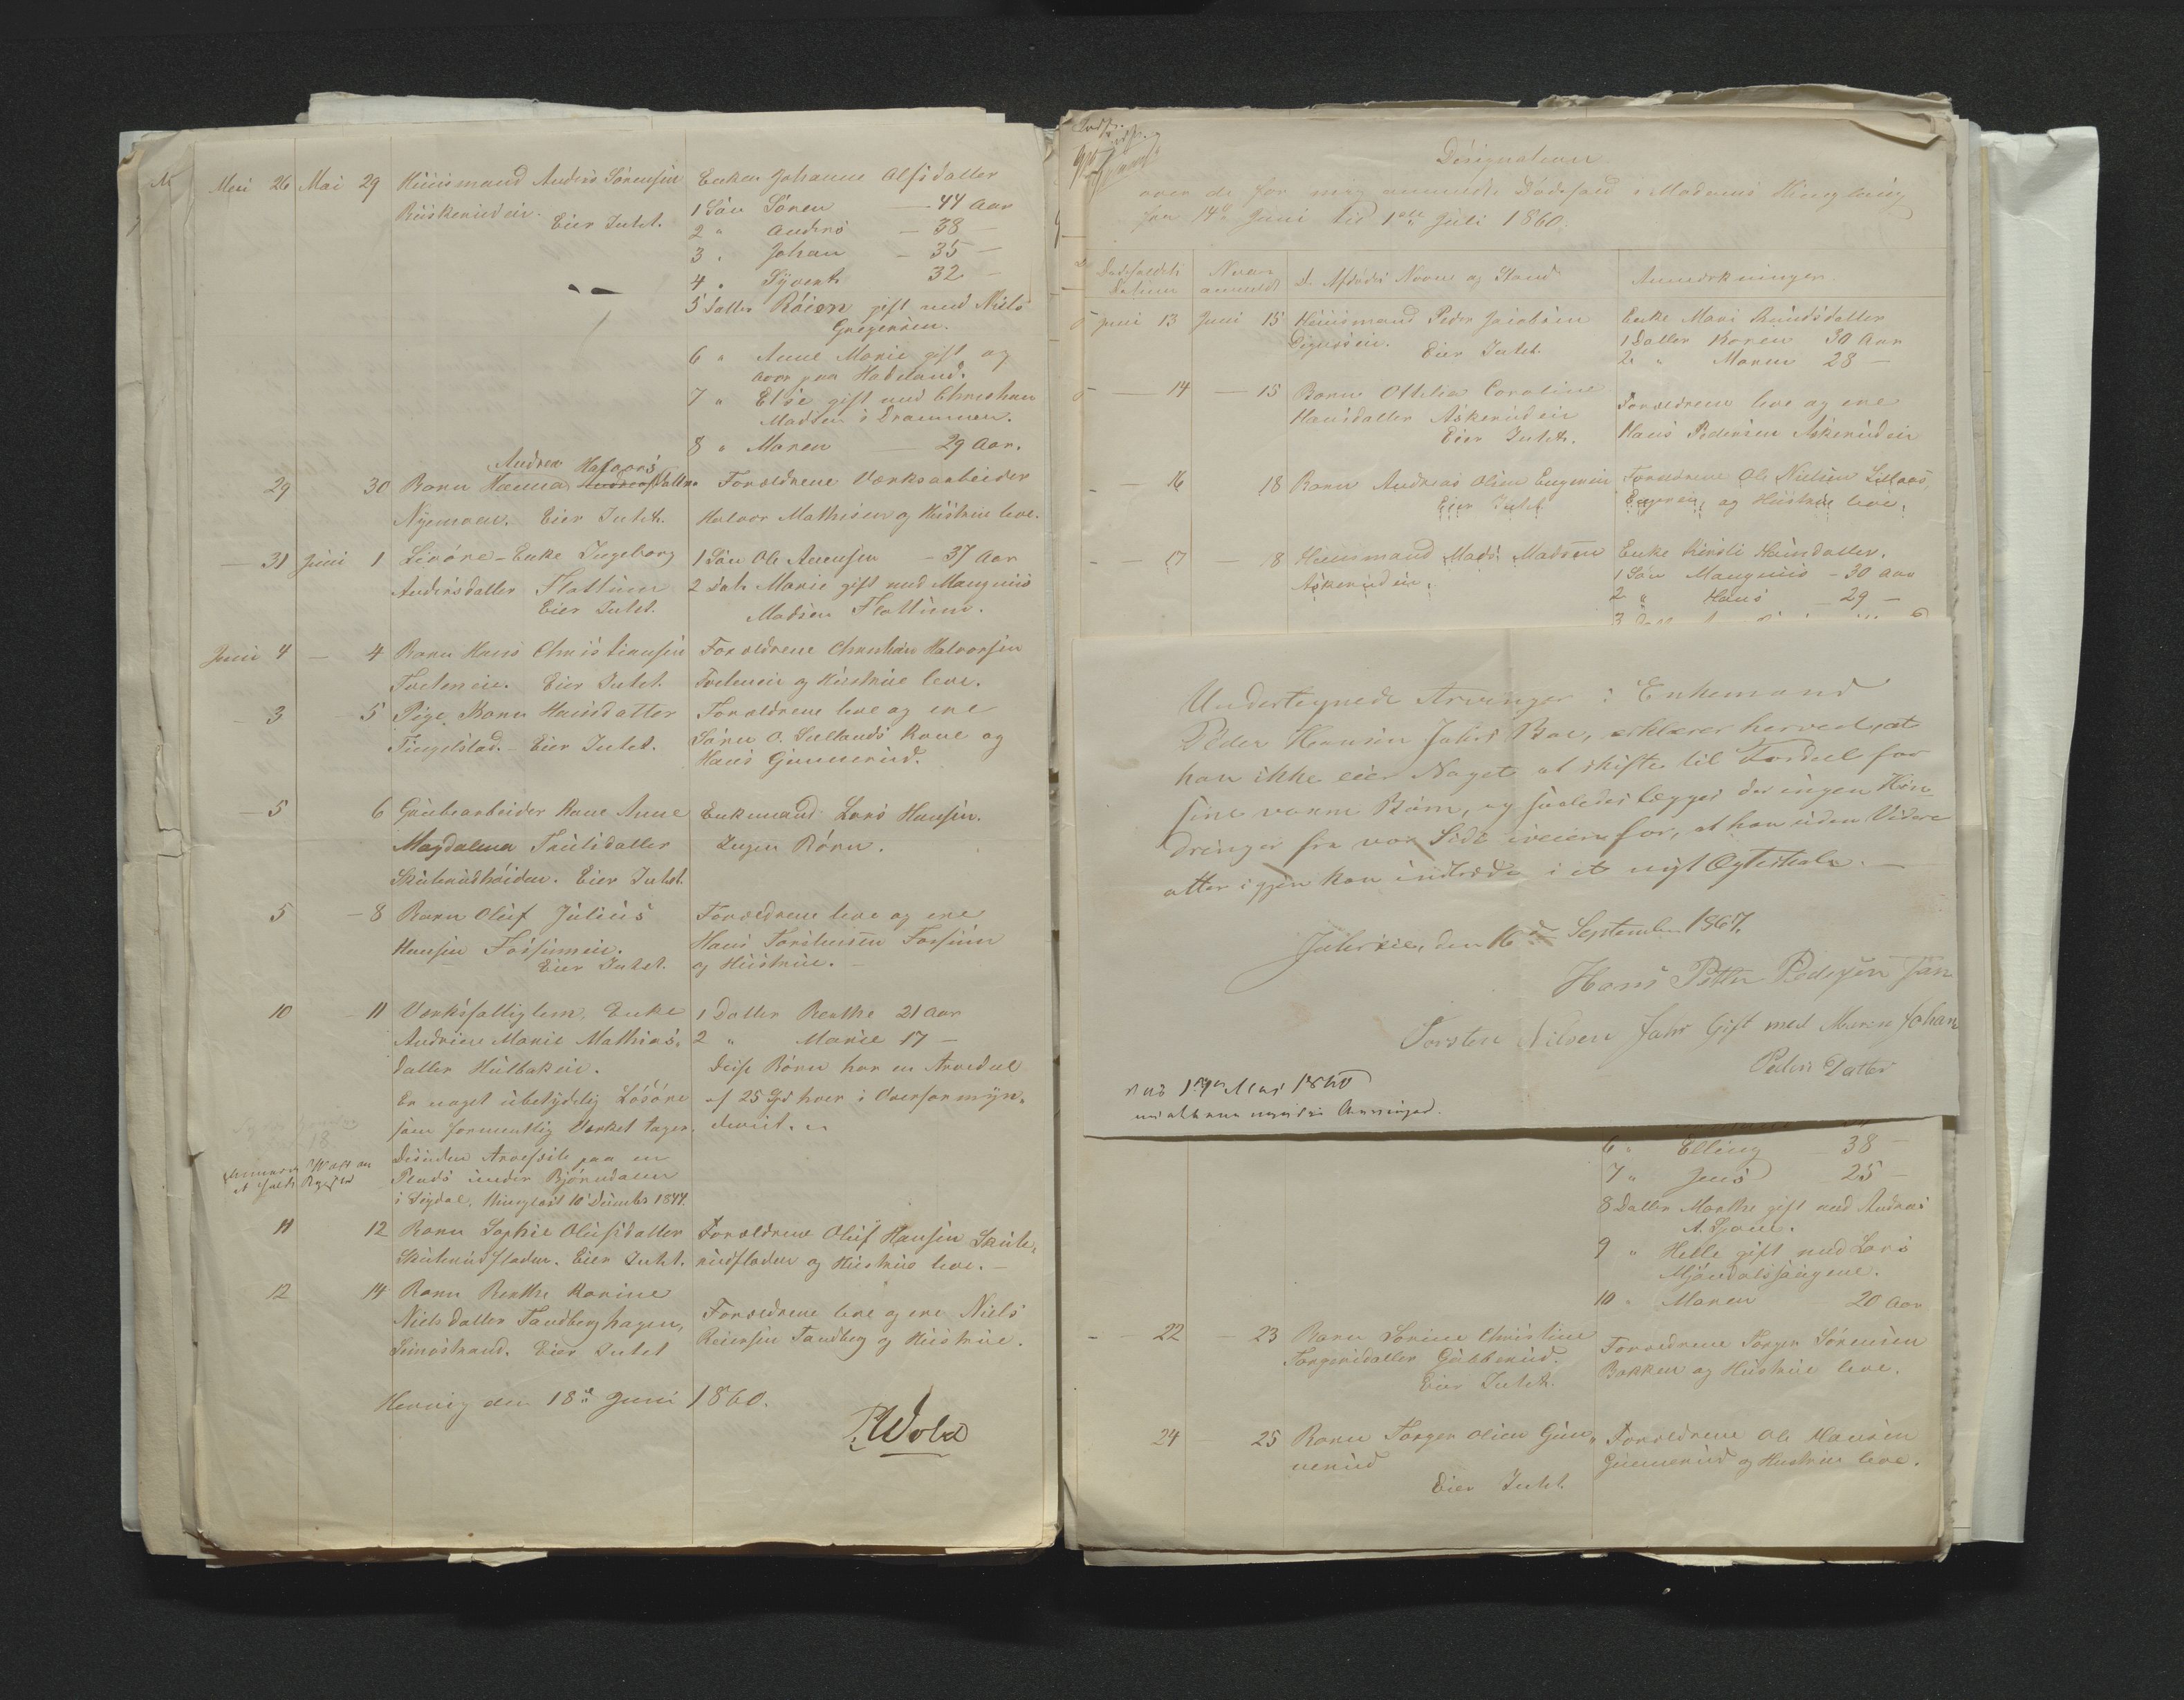 Mai 26 Mai 29 Huusmand Anders Sørensen Enken Johanne Olsdatter
Ruskerudeie. 1 Søn Søren — 44 Aar
Eier Intet. 2 " Anders — 38 —
3 " Johan — 35 —
4 " Syvert 32 —
5 Datter gift med Niels
Gregersen.
6 " Anne Marie gift og
boer paa Hadeland.
7 " Else gift med Christian
Madsen i Drammen.
8 " Maren — 29 Aar.
Andrea Halvors
29 30 Barn Hanna Datter Forældrene Værksarbeider
Nyemoen. Eier Intet. Halvor Mathisen og Hustrue leve.
— 31 Juni 1 Enke Ingeborg 1 Søn Ole Arensen — 37 Aar
Andersdatter Flattum 2 Datr Marie gift med Maugnus
Eier Intet. Madsen Flattum.
Juni 4 — 4 Barn Hans Christiansen Forældrene Christian Halvorsen
Eier Intet. og Hustrue leve.
3 5 Pige Karn Hansdatter Forældrene leve og ere
Tingelstad. — Eier Intet. Søren O. Kone og
Hans Gunnerud.
— 5 6 Grubearbeider Kone Anne Enkemand Lars Hansen.
Magdalena Trulsdatter Ingen Børn.
Skuterudhøiden. Eier Intet.
5 — 8 Barn Oluf Julius Forældrene leve og ere
Hansen Fossumeie. Hans Torstensen Fossum
Eier Intet. og Hustrue. —
10 — 11 Værksfattiglem, Enke 1 Datter Berthe 21 Aar
Andrine Marie Mathias- 2 " Marie 17 —
datter Hulbakeie. Disse Børn har en Arvedeel
Er noget ubetydelig Løsøre af 25 Spd hver i Overformyn-
som formentlig Værket tager. deriet.
Desuden paa en
Plads under Bjørndalen
i Sigdal, thinglæst 10 December 1844.
11 12 Barn Sophie Olufsdatter Forældrene Oluf Hansen Skute-
Skuterudfladen. Eier Intet. rudfladen og Hustrue leve. —
12 14 Barn Berthe Karine
Nielsdatter Tandberghagen, Forældrene leve og ere Niels
Simostrand. Eier Intet Reiersen Tandberg og Hustrue.
den 18de Juni 1860.
P. Wold
Designation
over de for mig anmeldte Dødsfald i Modums Thinglaug
fra 14de Juni til 1ste Juli 1860.
Dødsfaldets Datum Naar anmeldt De Afdødes Navne og Stand Anmærkninger.
Juni 13 Juni 15 Huusmand Peder Jacobsen Enke Mari Knudsdatter
1 Datter Karen 30 Aar
Eier Intet. 2 " Maren 28 —
— 14 — 15 Barn Othilia Caroline
Hansdatter Askerudeie Forældrene leve og ere
Eier Intet. Hans Pedersen Askerudeie
— 16 18 Barn Andreas Olsen Forældrene Ole Nielsen
Eier Intet og Hustrue leve.
— 17 — 18 Huusmand Mads Madsen Enke Kirsti Hansdatter.
Askerudeie. 1 Søn Maugnus — 30 Aar
2 " Hans — 29 —
Undertegnede Arvinger i Enkemand
Peder Hansen Jahrs Boe, erklærer herved, at
han ikke eier Noget at skifte til Fordeel for
sine voxne Børn, og saaledes lægges der ingen Hin-
dringer fra vor Side iveien for, at han uden Videre
atter igjen kan indtræde i et nyt Egteskab. —
den 16de September 1867.
Hans Petter Pedersen Jahr
Torsten Nilsen Jahr Gift med Maren Johan
Peders Datter
Mai 1860
6 " Elling 38 —
7 " Jens — 25 —
8 Datter Marthe gift med Andreas
9 " Helle gift med Lars
10 " Maren 20 Aar
— 22 — 23 Barn Sorine Christine Forældrene Torger Sørensen
Torgersdatter Gubberud. Bakken og Hustrue leve.
Eier Intet.
24 25 Barn Torger Olsen Gun- Forældrene Ole Hansen
nerud Gunnerud og Hustrue leve.
Eier Intet.